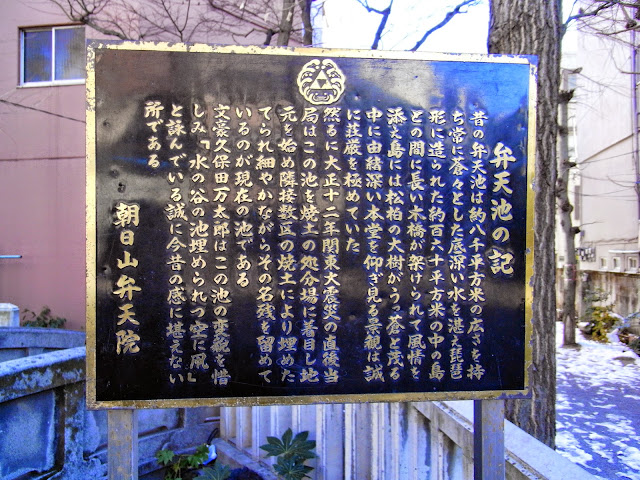 弁天池の記
昔の弁天池は約八千平方米の広さを持
ち常に蒼々とした底深い水を湛え琵琶
形に造られた約百六十平方米の中の島
との間に長い木橋が架けられて風情を
添え島には松柏の大樹がうっ蒼と茂る
中に由緒深い本堂を仰ぎ見る景観は誠
に荘厳を極めていた
然るに大正十二年関東大震災の直後当
局はこの池を焼土の処分場に着目し地
元を始め隣接数区の焼土により埋めた
てられ細やかながらその名残を留めて
いるのが現在の池である
文豪久保田万太郎はこの池の変貌を惜
しみ「水の谷の池埋められつ空に凧」
と詠んでいる誠に今昔の感に堪えない
所である
朝日山弁天院